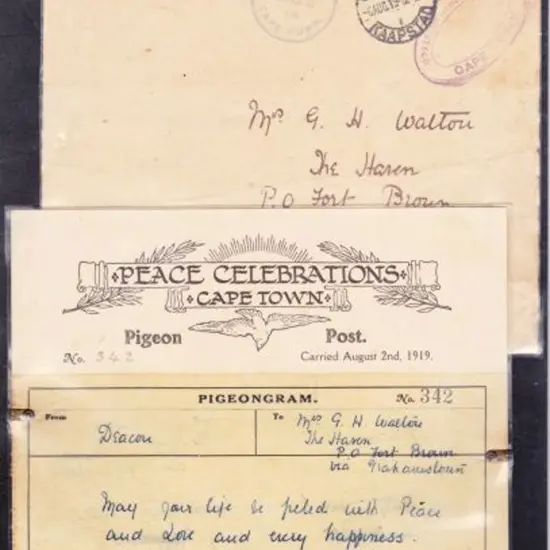 CAPE TOWN
AUG 19
KAAPSTAD
CAPE
Mrs G. H. Walton
The Haven
P.O Fort Brown
PEACE CELEBRATIONS
CAPE TOWN
Pigeon Post.
No. 342 Carried August 2nd, 1919.
PIGEONGRAM. No. 342
From To Mrs G. H. Walton
Deacon The Haven
P.O Fort Brown
via Grahamstown
May your life be filled with Peace
and Love and every happiness.